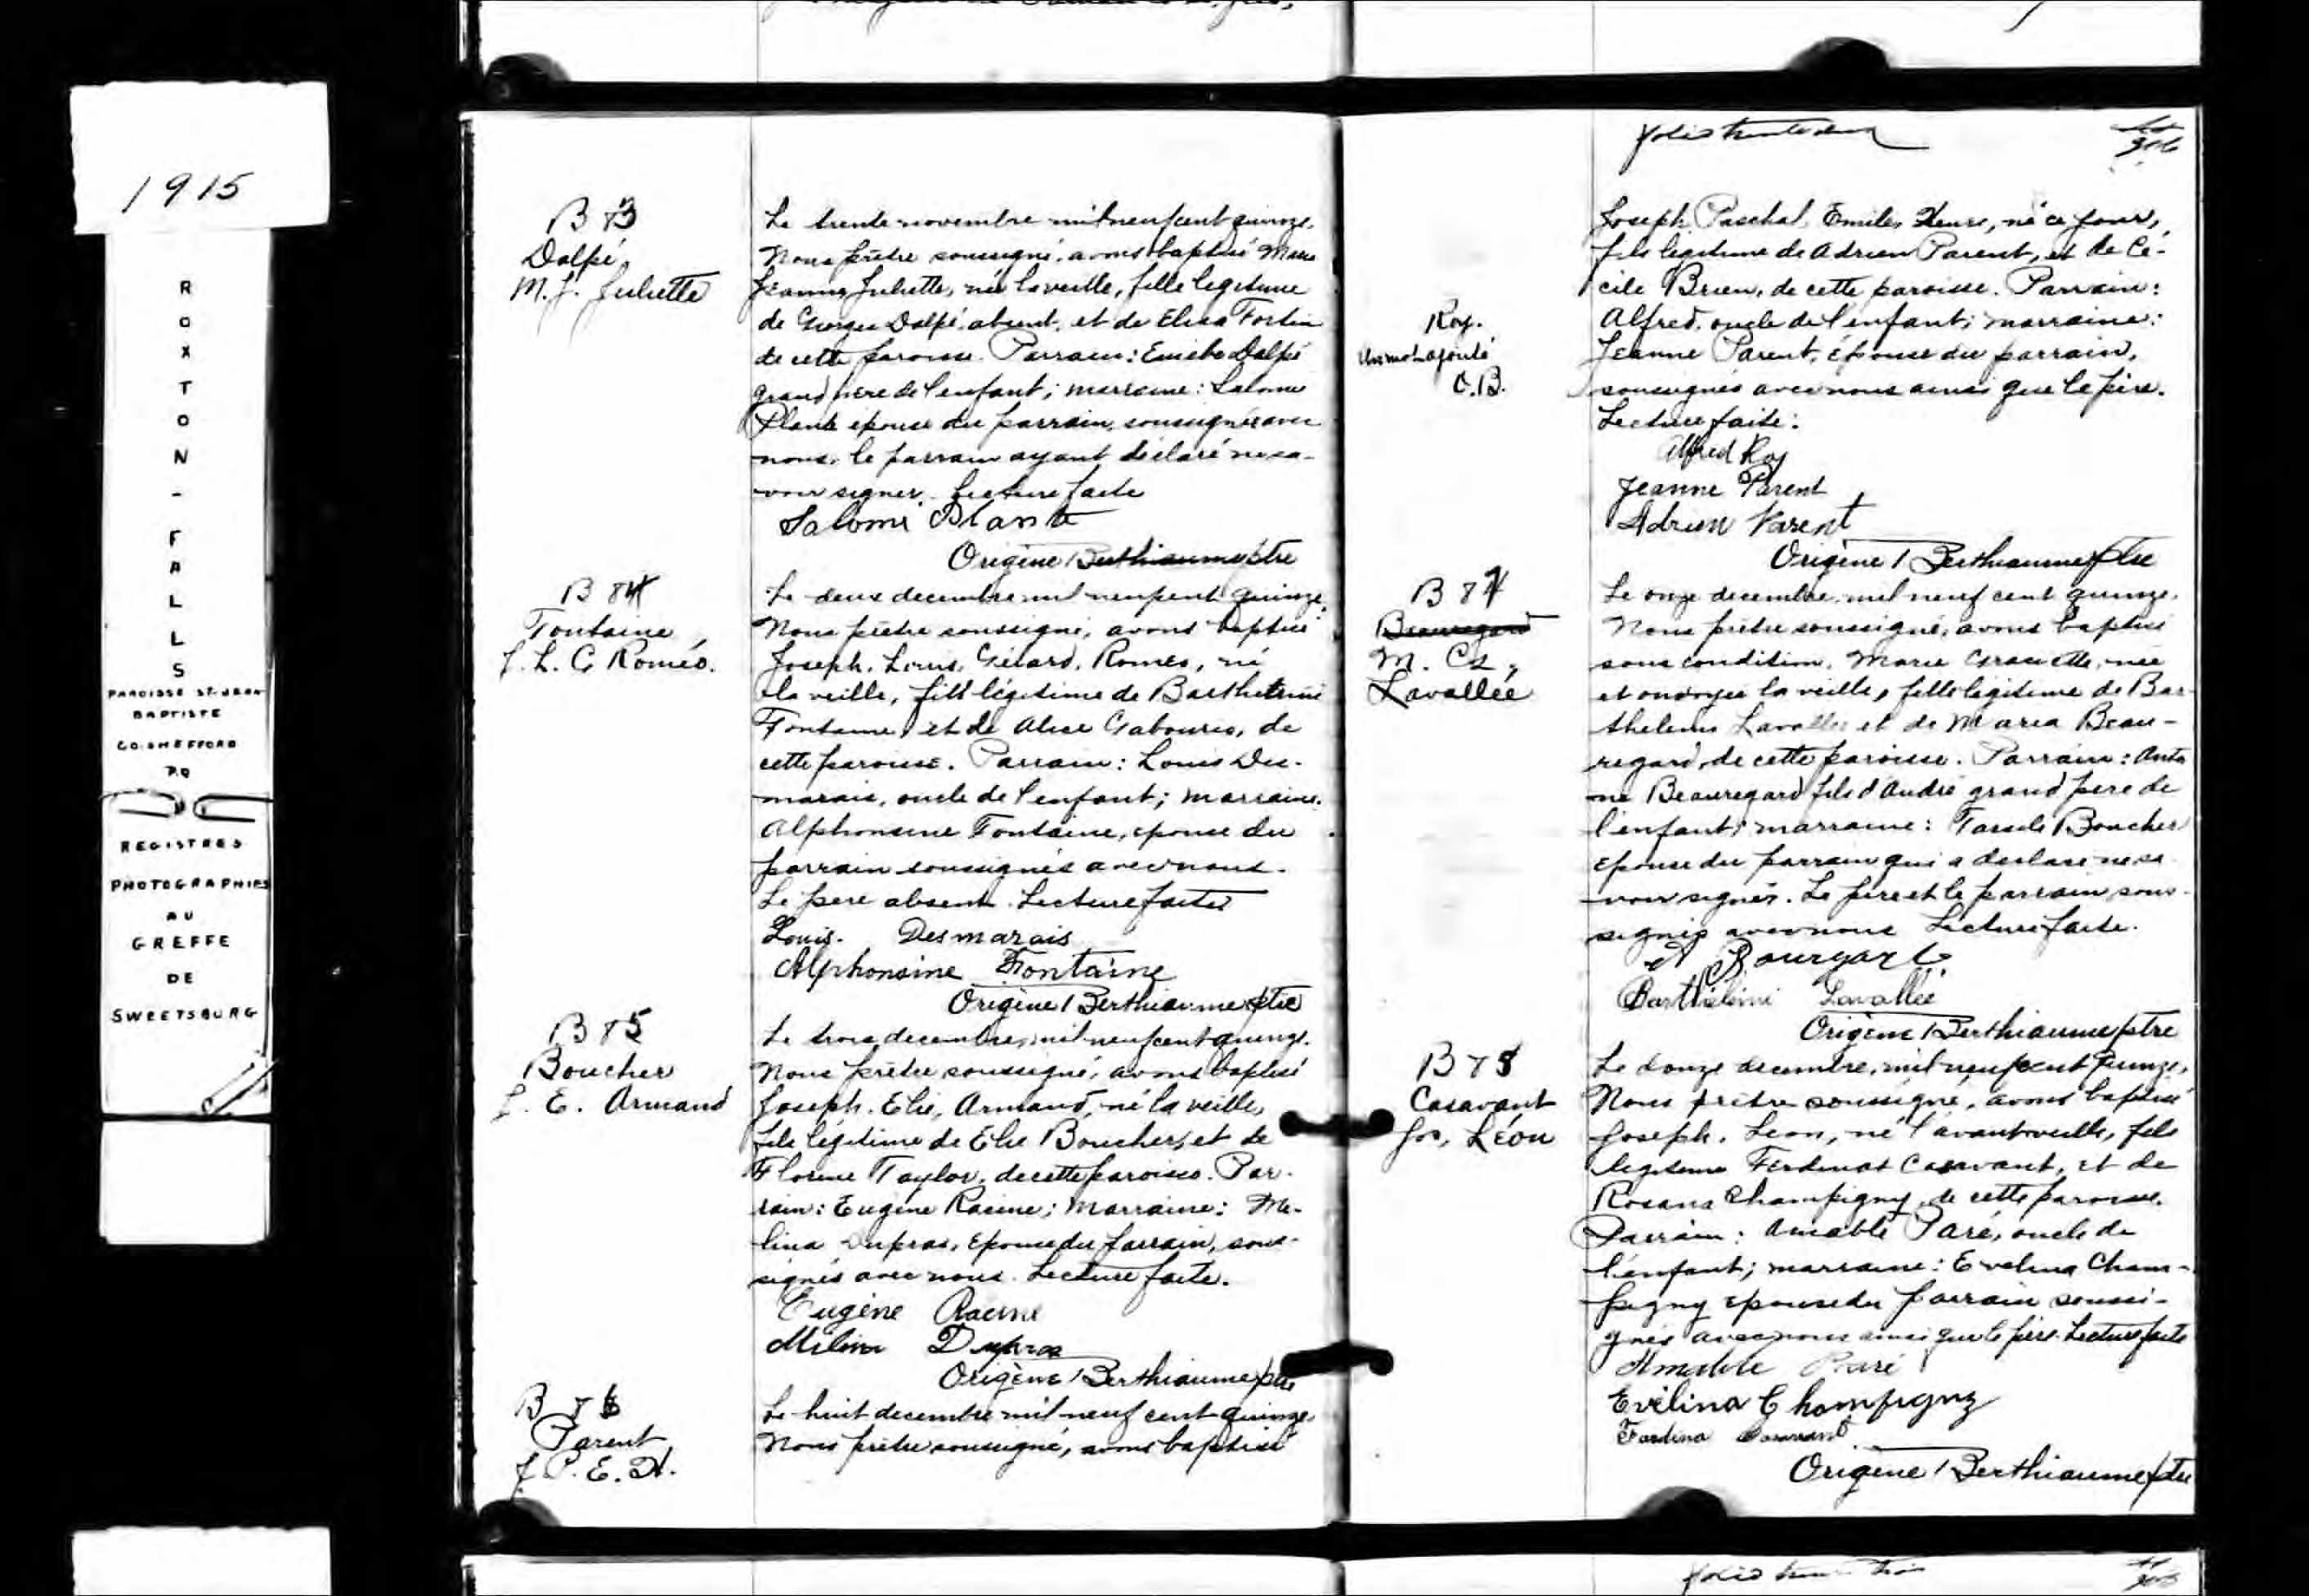 1915
ROXTON-FALLS
PAROISSE ST-JEAN-
BAPTISTE
CO. SHEFFORD
P.Q
REGISTRES
PHOTOGRAPHIES
AU
GREFFE
DE
SWEETSBURG
B 83
Dalpé
M. J. Juliette
Le trente novembre mil neuf cent quinze.
Nous prêtre soussigné, avons baptisé Marie
Jeanne Juliette, née la veille, fille legitime
de Georges Dalpé, absent, et de Eliza Fortin
de cette paroisse. Parrain: Dalpé
grand père de l'enfant; marraine: Salomé
Plante épouse du parrain, soussignée avec
nous, le parrain ayant déclaré ne sa-
voir signer. Lecture faite
Salomé Plante
Origène Berthiaume ptre
B 84
Fontaine
J. L. G Roméo.
Le deux decembre mil neuf cent quinze.
Nous prêtre soussigné, avons baptisé
Joseph, Louis, Gérard, Romeo, né
la veille, fils légitime de Barthelemi
Fontaine et de Alice Gaboury, de
cette paroisse. Parrain: Louis Des-
marais, oncle de l'enfant; marraine.
Alphonsine Fontaine, epouse du
parrain soussignés avec nous.
Le père absent. Lecture faite
Louis. Desmarais
Alphonsine Fontaine
Origène Berthiaume ptre
B 85
Boucher
J. E. Armand
Le trois decembre, mil neuf cent quinze.
Nous prêtre soussigné, avons baptisé
Joseph. Elie, Armand, né la veille,
fils légitime de Elie Boucher, et de
Taylor, de cette paroisse. Par-
rain: Eugène Racine; Marraine: Me-
lina Dupras, Epouse du parrain, sous-
signés avec nous. Lecture faite.
Eugène Racine
Melina Dupras
Origène Berthiaume ptre
B 86
Parent
J. P. E. H.
Le huit decembre mil neuf cent quinze,
Nous prêtre soussigné, avons baptisé
folio trente deux
Joseph, Paschal, Emile, né ce jour,
fils legitime de Adrien Parent, et de Cé-
cile Brien, de cette paroisse. Parrain:
Roy.
Un mot ajouté
O.B.
Alfred, oncle de l'enfant; marraine:
Jeanne Parent, épouse du parrain,
soussignés avec nous ainsi que le père.
Lecture faite:
Alfred Roy
Jeanne Parent
Adrien Parent
Origène Berthiaume ptre
B 87
Beauregard
M.
Lavallée
Le onze decembre, mil neuf cent quinze.
Nous prêtre soussigné, avons baptisé
sous condition, Marie née
et ondoyée la veille, fille legitime de Bar-
thelemi Lavallée et de Maria Beau-
regard, de cette paroisse. Parrain:
Beauregard fils d'André grand père de
l'enfant; marraine: Boucher
épouse du parrain qui a declaré ne sa-
voir signer. Le père et le parrain sous-
signés avec nous Lecture faite.
Lavallée
Origène Berthiaume ptre
B 88
Casavant
Jos, Léon
Le douze decembre, mil neuf cent quinze,
Nous prêtre soussigné, avons baptisé
Joseph, Leon, né l'avant veille, fils
legitime Casavant, et de
Rosana Champigny, de cette paroisse.
Parrain: Amable Paré, oncle de
l'enfant; marraine: Evelina Cham-
pigny epouse du parrain soussi-
gnés avec nous ainsi que le père. Lecture faite
Amable Paré
Evelina Champigny
Casavant
Origène Berthiaume ptre
folio trente trois